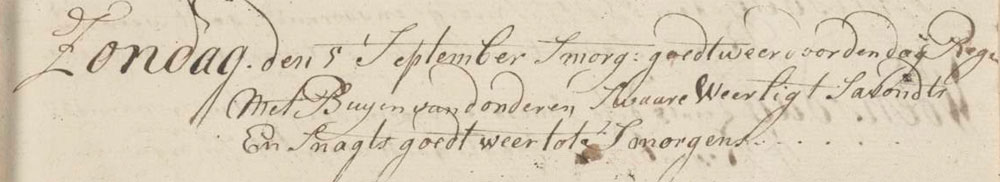 Zondag. den 5 September Smorg: goedt weer voor den dag Rege
Met Buyen van donderen, Swaare Weerligt Savondts
En Snagts goedt weer tot Smorgens. . . . .